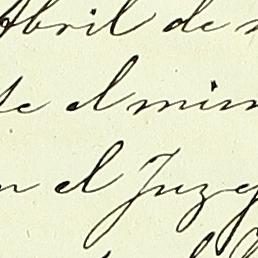 Abril de
te el mism
n el Juzg